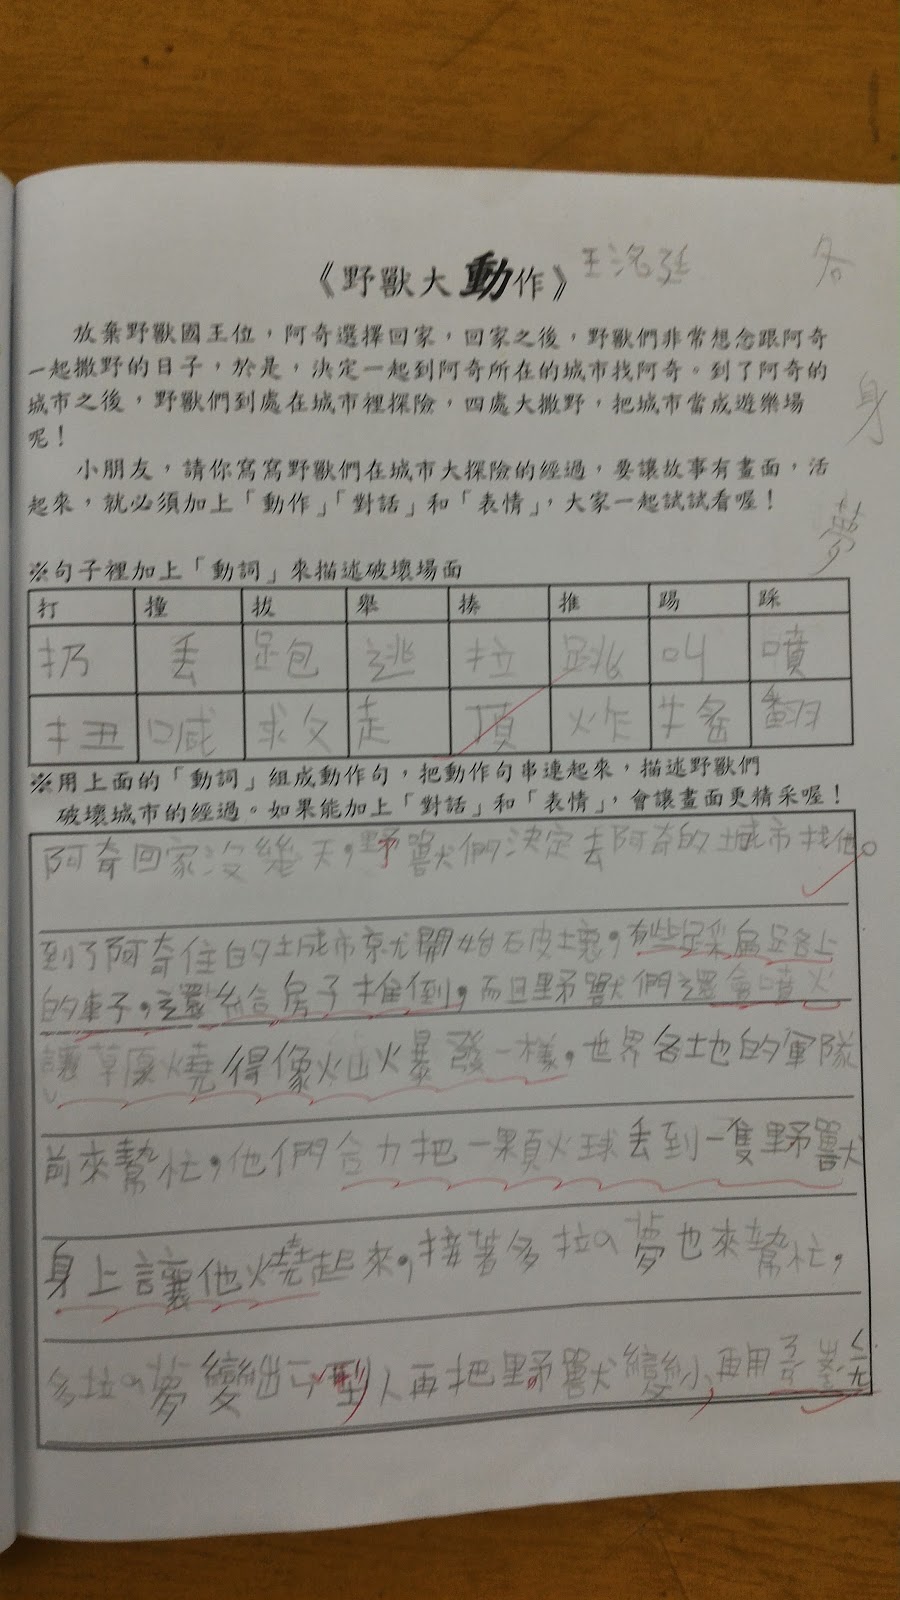 《野獸大動作》 王洺廷
各
放棄野獸國王位，阿奇選擇回家，回家之後，野獸們非常想念跟阿奇
一起撒野的日子，於是，決定一起到阿奇所在的城市找阿奇。到了阿奇的
城市之後，野獸們到處在城市裡探險，四處大撒野，把城市當成遊樂場
呢！
身
小朋友，請你寫寫野獸們在城市大探險的經過，要讓故事有畫面，活
起來，就必須加上「動作」「對話」和「表情」，大家一起試試看喔！
夢
※句子裡加上「動詞」來描述破壞場面
打 撞 拔 舉 揍 推 踢 踩
扔 丟 跑 逃 拉 跳 叫 噴
扭 喊 求 走 頂 炸 搖 翻
※用上面的「動詞」組成動作句，把動作句串連起來，描述野獸們
破壞城市的經過。如果能加上「對話」和「表情」，會讓畫面更精采喔！
阿奇回家沒幾天，野獸們決定去阿奇的城市找他。
到了阿奇住的城市就開始破壞，有些踩扁路上
的車子，還給房子推倒，而且野獸們還會噴火
讓草原燒得像火山火暴發一樣，世界各地的軍隊
前來幫忙，他們合力把一顆火球丟到一隻野獸
身上讓他燒起來，接著多拉a夢也來幫忙，
多拉a夢變出了 人再把野獸變小，再用